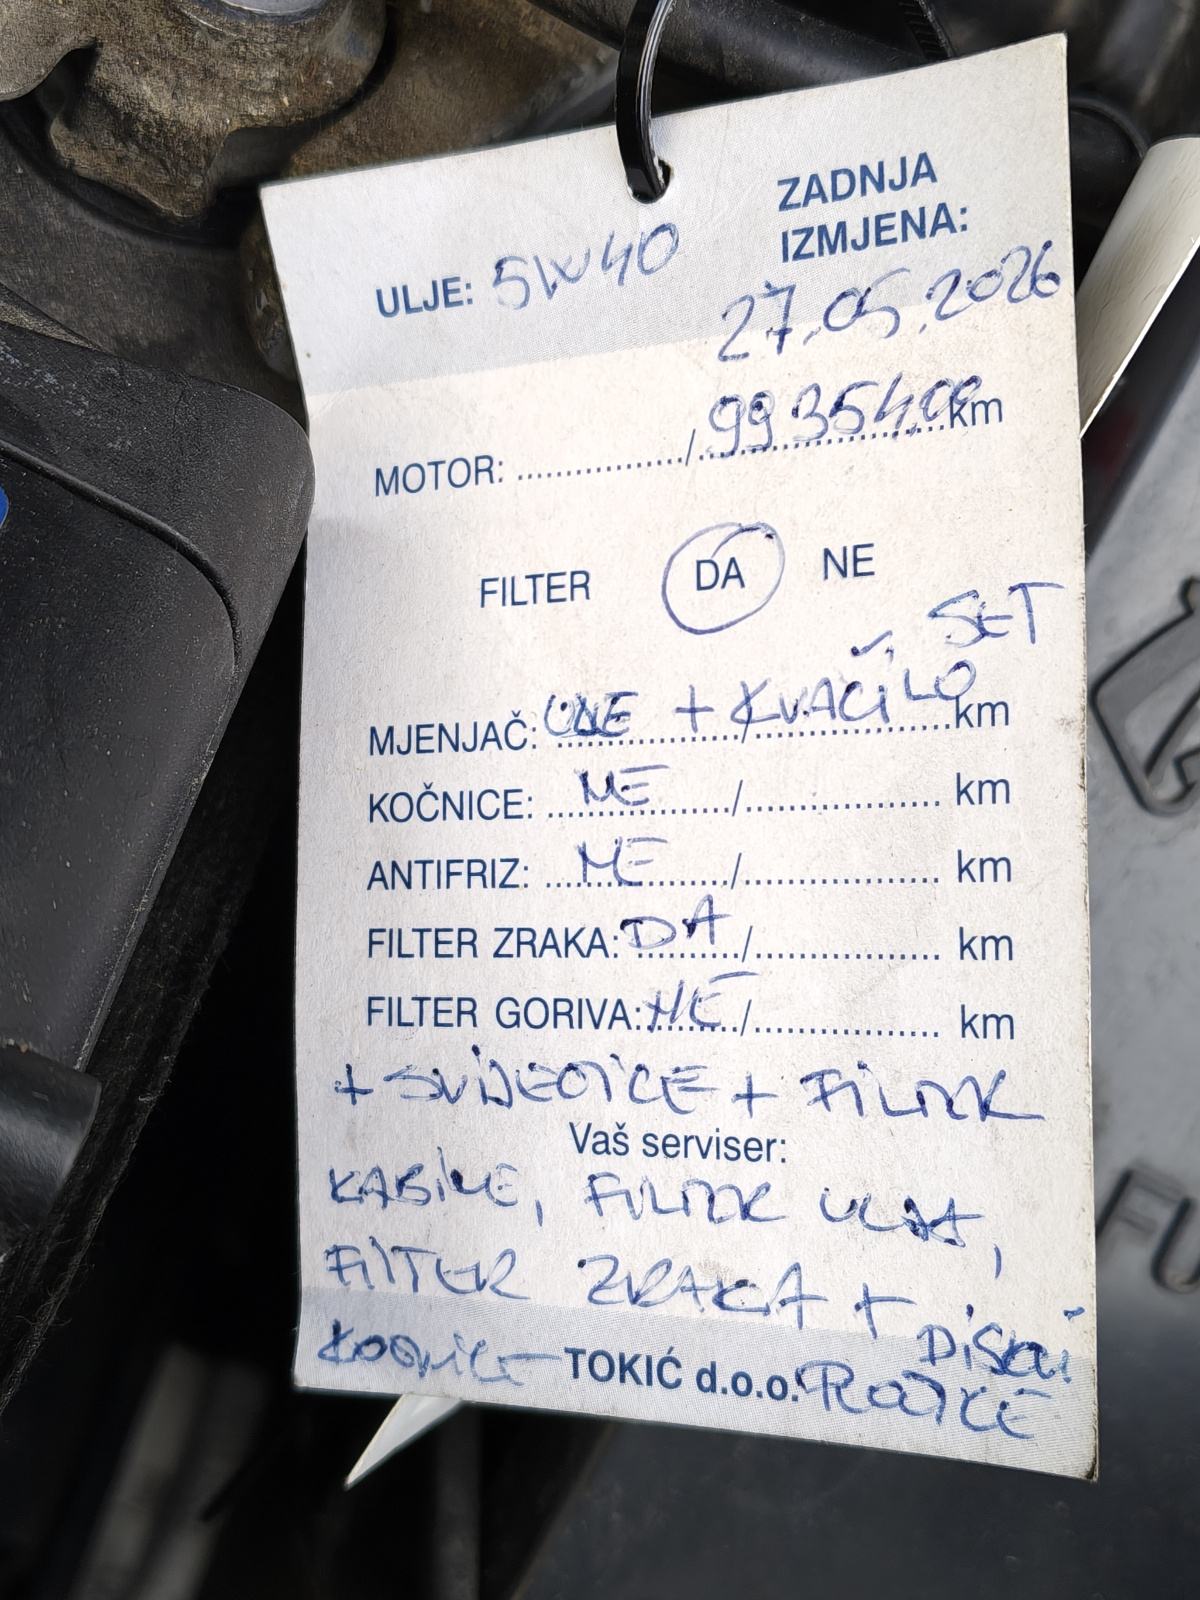 ULJE: 5W40
ZADNJA
IZMJENA:
27.05.2026
MOTOR: ................/.99354,00 km
FILTER DA NE
SET
MJENJAČ: ULJE + KVAČILO km
KOČNICE: NE /.................. km
ANTIFRIZ: NE /.................. km
FILTER ZRAKA: DA /.................. km
FILTER GORIVA: NE /.................. km
+ SVIJEĆICE + FILTER
Vaš serviser:
KABINE, FILTER ULJA,
FILTER ZRAKA + DISKOVI
KOČNICE TOKIĆ d.o.o.
FU